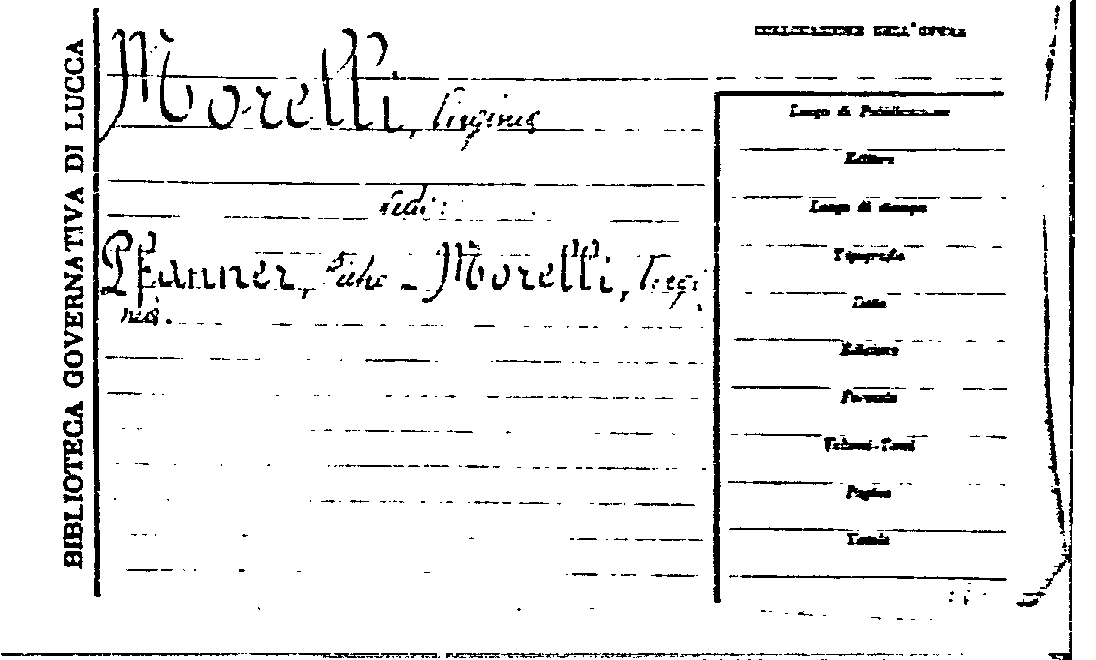 BIBLIOTECA GOVERNATIVA DI LUCCA
COLLOCAZIONE DELL'OPERA
Morelli, Virginia
vedi:
Pfanner, - Morelli, Virgi
nia.
Luogo di Pubblicazione
Editore
Luogo di stampa
Tipografia
Data
Edizione
Formato
Volumi-Tomi
Pagine
Tavole